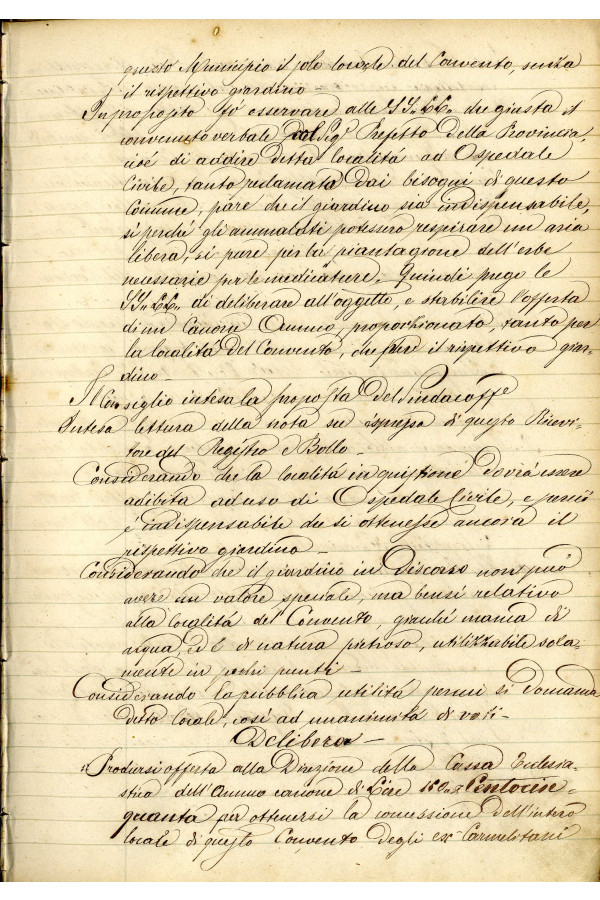 questo Municipio il solo locale del Convento, senza
il rispettivo giardino —
In proposito fò osservare alle SS. LL. che giusta il
convenuto verbale col Sig. Prefetto della Provincia,
cioè di addire detta località ad Ospedale
Civile, tanto reclamata dai bisogni di questo
Comune, pare che il giardino sia indispensabile,
sì perché gli ammalati potessero respirare un aria
libera, sì pure per la piantagione dell'erbe
necessarie per le medicature. Quindi prego le
SS. LL. di deliberare all'oggetto, e stabilire l'offerta
di un Canone Annuo, proporzionato, tanto per
la località del Convento, che per il rispettivo giar-
dino —
Il Consiglio intesa la proposta del Sindaco ff.e
Intesa lettura della nota su espressa di questo Ricevi-
tore del Registro e Bollo —
Considerando che la località in quistione dovrà essere
adibita ad uso di Ospedale Civile, e perciò
è indispensabile che si ottenesse ancora il
rispettivo giardino —
Considerando che il giardino in Discorso non può
avere un valore speciale, ma bensì relativo
alla località del Convento, giacché manca di
acqua, ed è di natura pietroso, utilizzabile sola-
mente in pochi punti —
Considerando la pubblica utilità per cui si domanda
detto locale, così ad unanimità di voti —
Delibera —
Prodursi offerta alla Direzione della Cassa Ecclesia-
stica dell'Annuo canone di Lire Centocin-
quanta per ottenersi la concessione dell'intero
locale di questo Convento degli ex Carmelitani